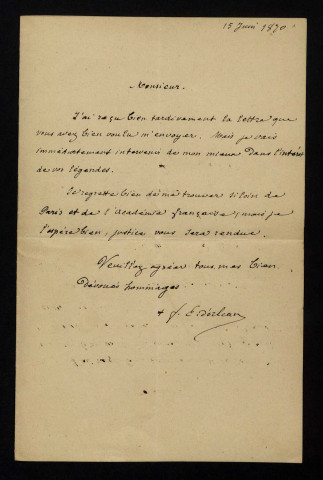 15 Juin 1870
Monsieur.
J'ai reçu bien tardivement la lettre que
vous avez bien voulu m'envoyer. Mais je vais
immédiatement intervenir de mon mieux dans l'intérêt
de vos légendes.
Je regrette bien de me trouver si loin de
Paris et de l'académie française; mais je
l'espère bien, justice vous sera rendue.
Veuillez agréer tous mes bien
dévoués hommages
+ f.